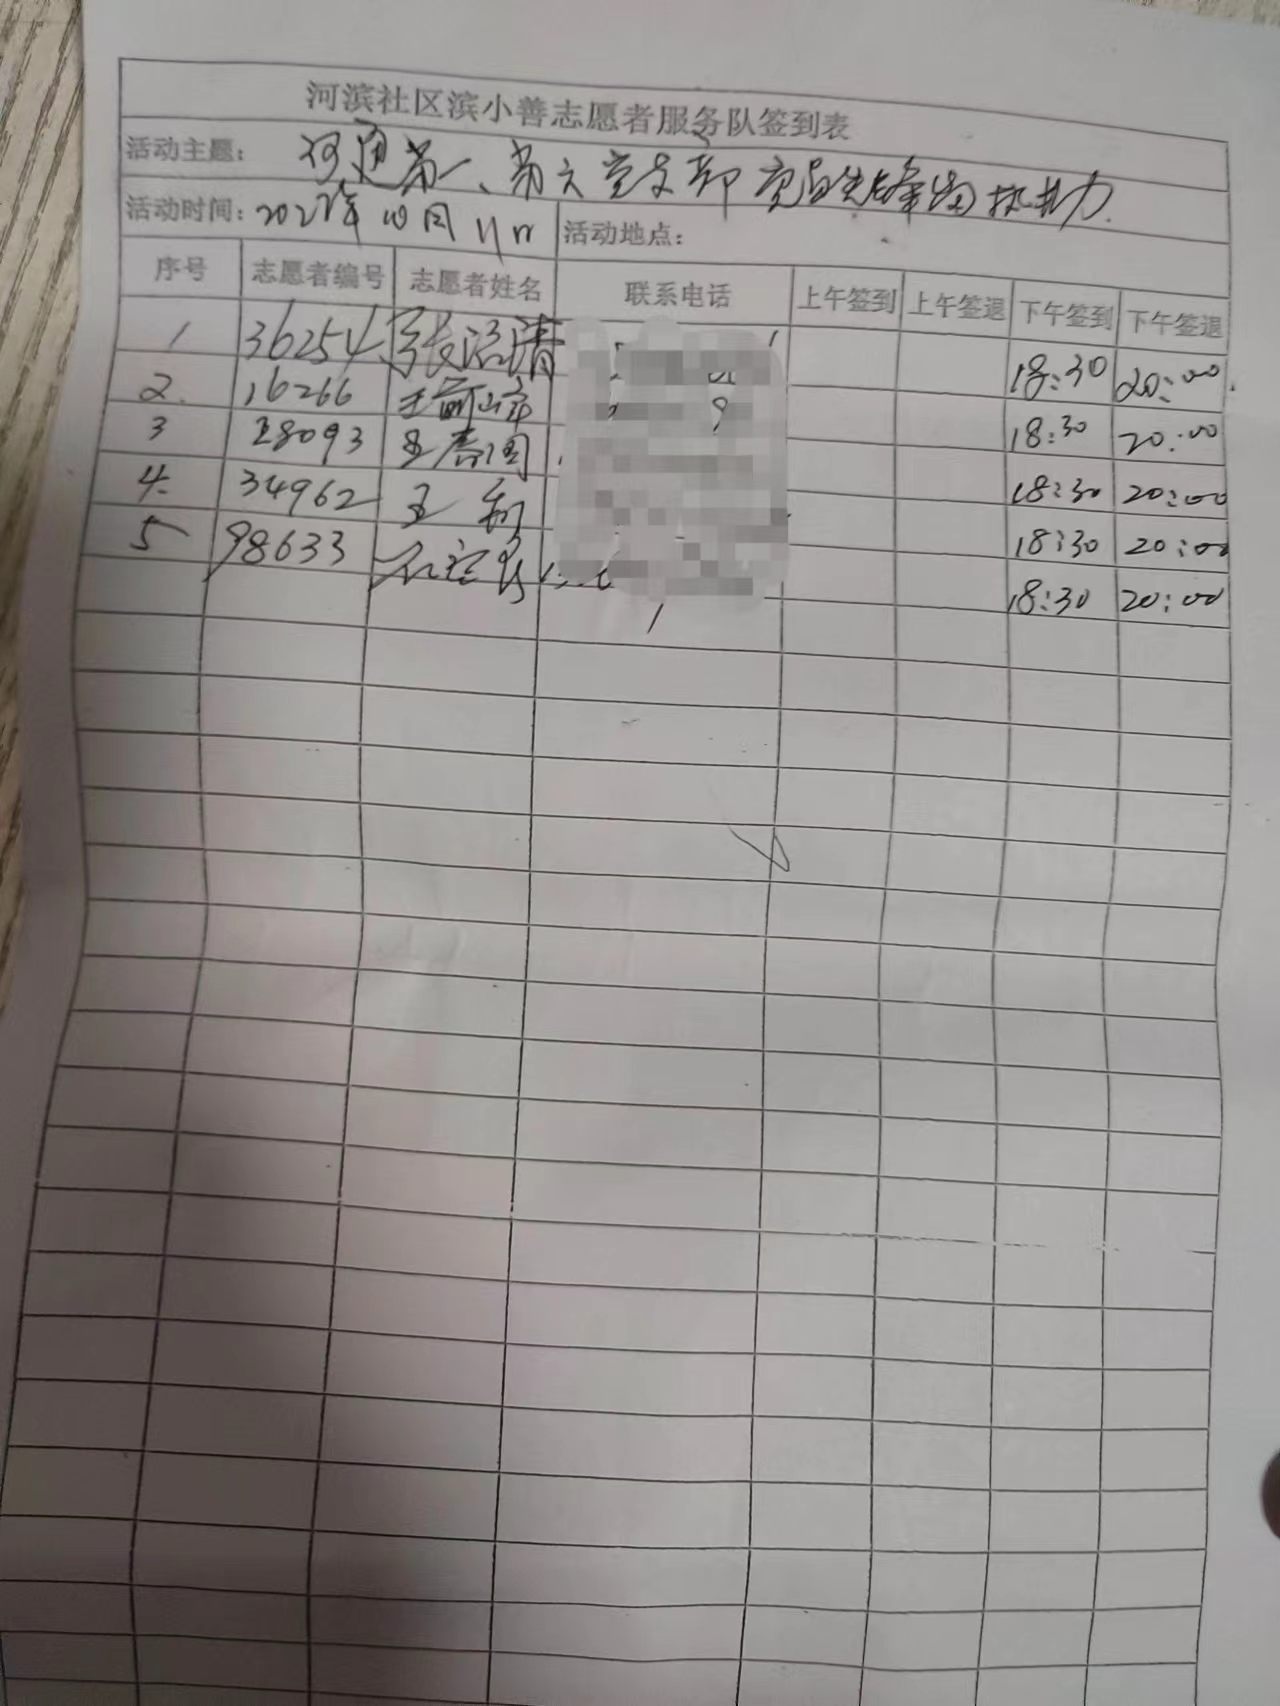 河滨社区滨小善志愿者服务队签到表
活动主题: 河通第一、第六党支部党员先锋 热力
活动时间: 年10月11日 活动地点:
序号 志愿者编号 志愿者姓名 联系电话 上午签到 上午签退 下午签到 下午签退
1 36254 张 清 18:30 20:00
2. 16266 王 18:30 20:00
3 28093 王春 18:30 20:00
4. 34962 王莉 18:30 20:00
5 98633 18:30 20:00